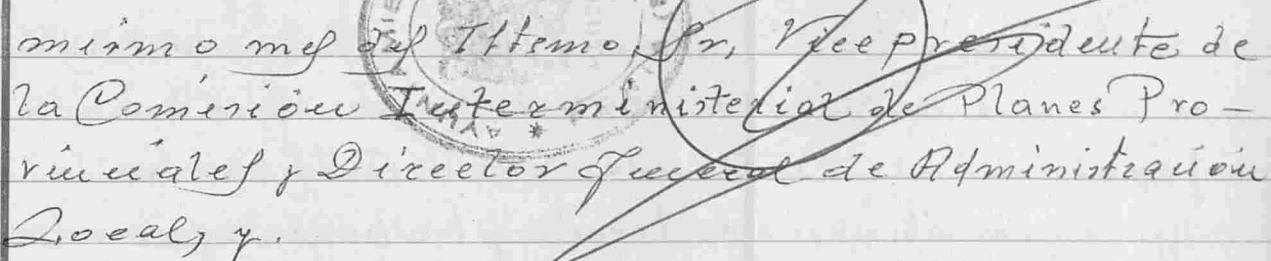 mismo mes del Iltemo, Sr, Vicepresidente de
la Comisión Interministerial de Planes Pro-
vinciales y Director General de Administración
Local, y.